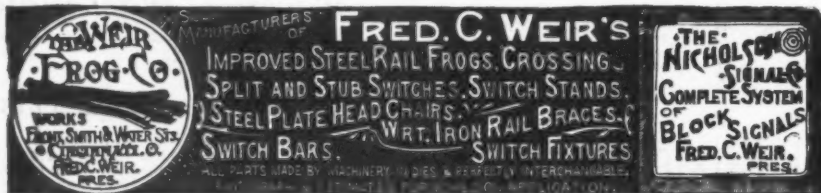 THE WEIR
FROG CO.
WORKS
FRONT, SMITH & WATER STS.
CINCINNATI, O.
FRED. C. WEIR.
PRES.
MANUFACTURERS
OF
FRED. C. WEIR'S
IMPROVED STEEL RAIL FROGS, CROSSING
SPLIT AND STUB SWITCHES, SWITCH STANDS.
STEEL PLATE HEAD CHAIRS.
WRT. IRON RAIL BRACES.
SWITCH BARS. SWITCH FIXTURES
ALL PARTS MADE BY MACHINERY IN DIES & PERFECTLY INTERCHANGEABLE,
APPLICATION.
THE
NICHOLSON
SIGNAL CO
COMPLETE SYSTEM
OF
BLOCK SIGNALS
FRED. C. WEIR.
PRES.